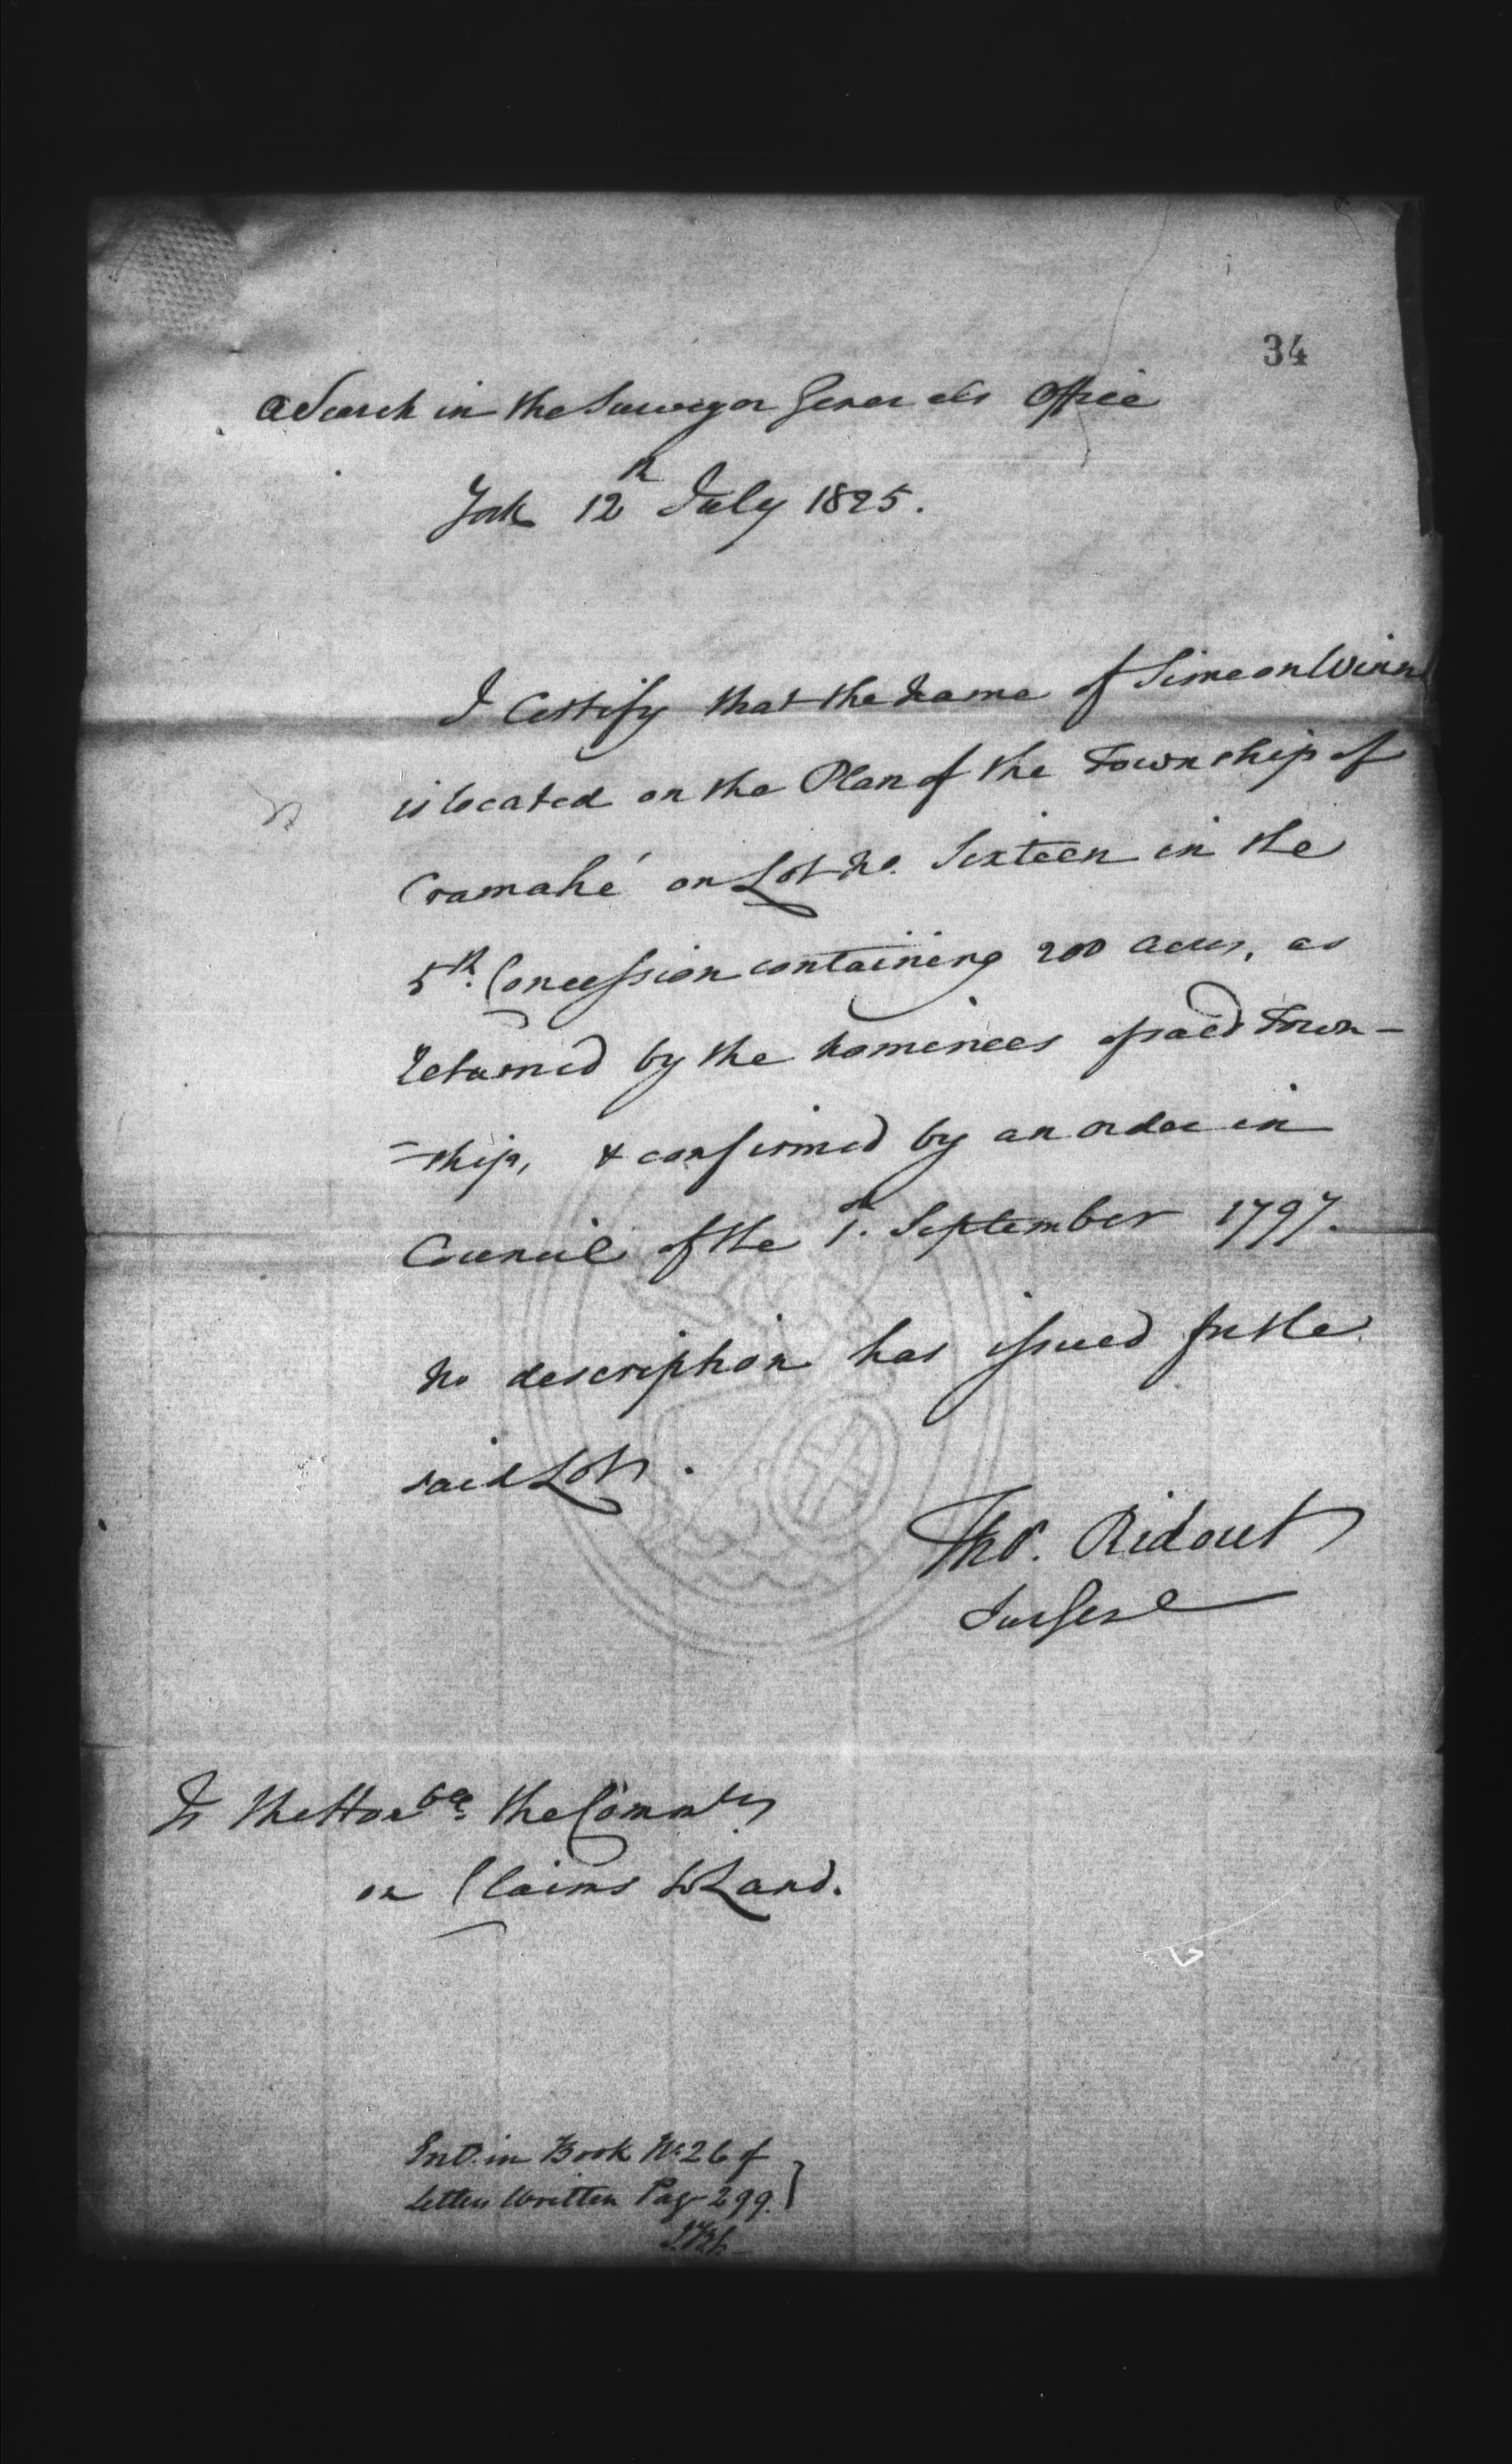 34
a Search in the Surveyor Generals Office
York 12th July 1825.
I Certify that the name of Simeon Winn
is located on the Plan of the Township of
Cramahé on Lot No. Sixteen in the
5th. Concession containing 200 acres, as
returned by the nominees of said Town-
-ship, & confirmed by an order in
Council of the 1st. September 1797.
No description has issued for the
said Lot.
Tho<sup>s</sup>. Ridout
Sur Genl
To the Honble. the Commrs.
on Claims to Land.
Entd. in Book No. 26 of
Letters Written Page 299.